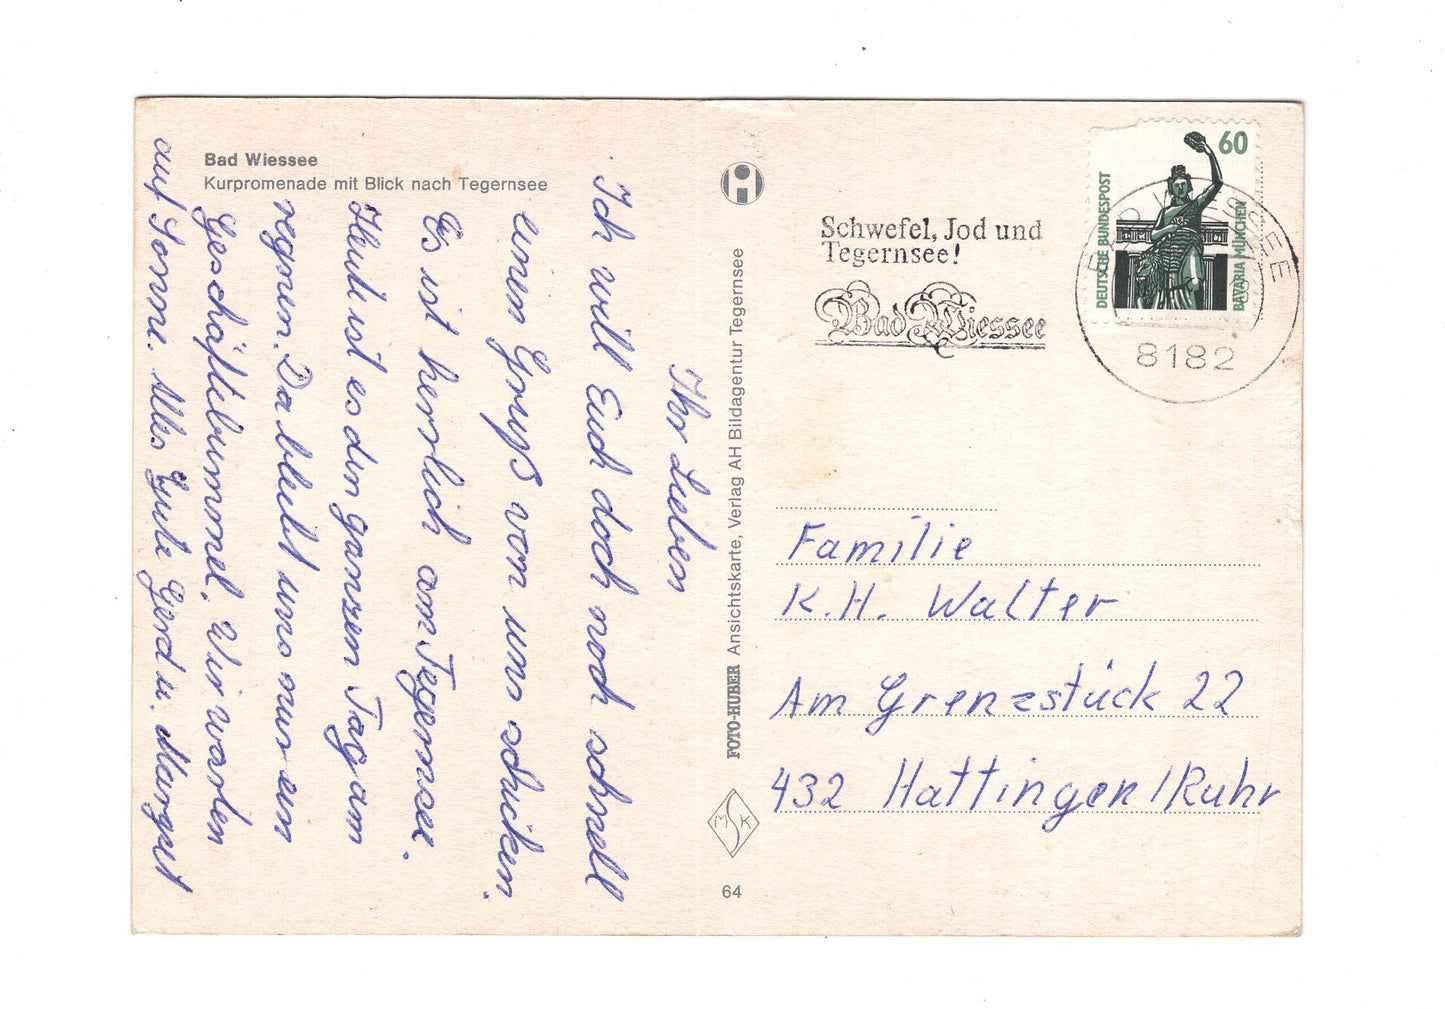 Bad Wiessee
Kurpromenade mit Blick nach Tegernsee
Ihr Lieben
Ich will Euch doch noch schnell
einen Gruß von uns schicken.
Es ist herrlich am Tegernsee.
Heute ist es den ganzen Tag am
regnen. Da bleibt uns nur ein
Geschäftebummel. Wir warten
auf Sonne. Alles Gute Gerd u. Margret
FOTO-HUBER Ansichtskarte, Verlag AH Bildagentur Tegernsee
MSK
64
Schwefel, Jod und
Tegernsee!
Bad Wiessee
DEUTSCHE BUNDESPOST
60
BAVARIA MÜNCHEN
BAD WIESSEE
8182
Familie
K.H. Walter
Am Grenzstück 22
432 Hattingen/Ruhr